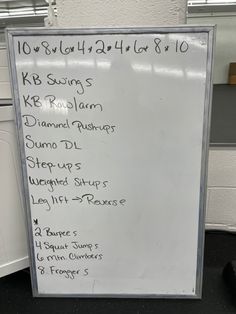 10 * 8 * 6 * 4 * 2 * 4 * 6 * 8 * 10
KB Swings
KB Row/arm
Diamond Pushups
Sumo DL
Step-ups
Weighted Situps
Leg lift → Reverse
*
2 Burpees
4 Squat Jumps
6 Mtn. Climbers
8 Froggers